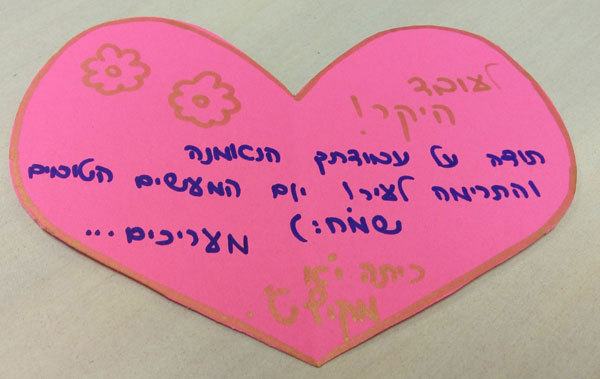 לעובד
היקר!
תודה על עבודתך הנאומנה
והתרימה לעיר! יום המעשים הטובים
שמח:) מעריכים...
כיתה
מקיף